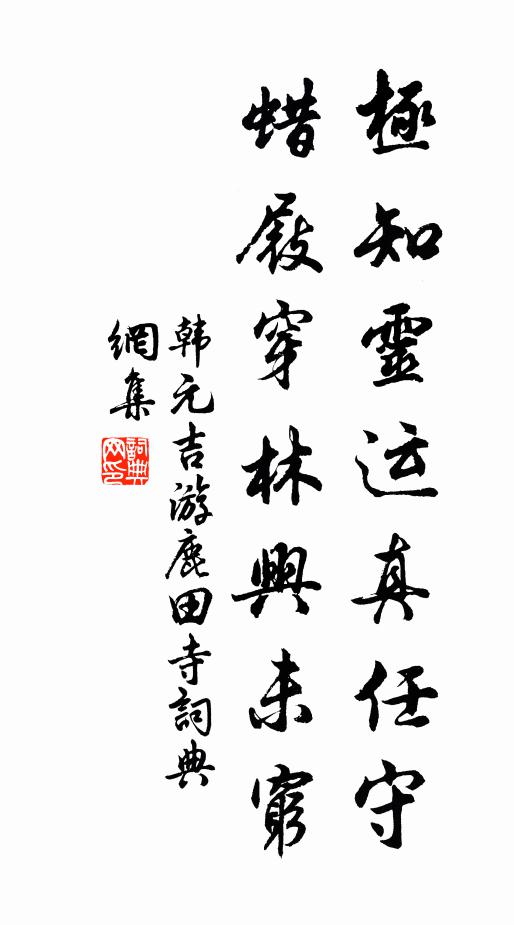 極知靈运真任守
蜡屐穿林興未窮
韩元吉游鹿田寺詞典
網集
詞典网印